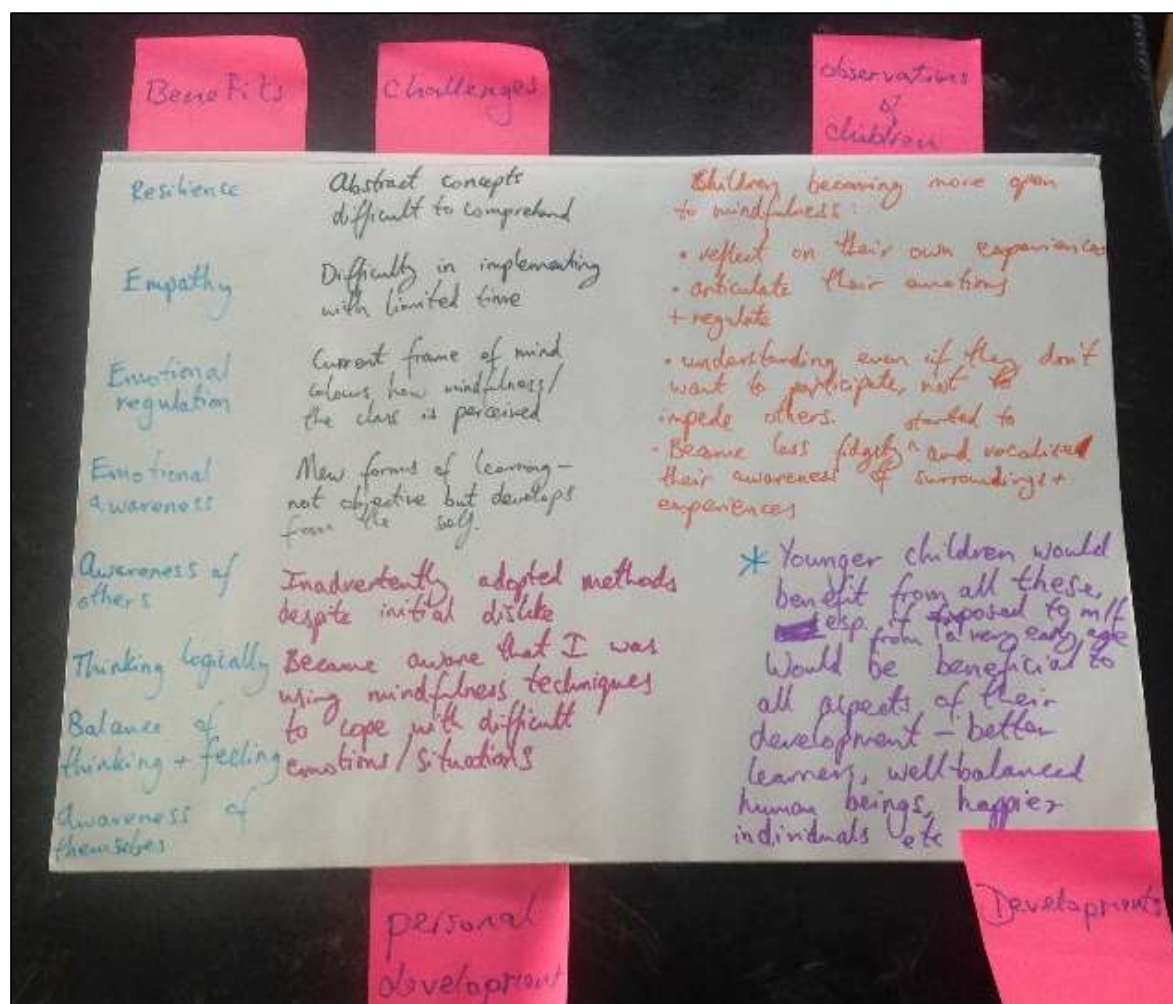 Benefits
Resilience
Empathy
Emotional
regulation
Emotional
awareness
Awareness of
others
Thinking logically
Balance of
thinking + feeling
Awareness of
themselves
Challenges
Abstract concepts
difficult to comprehend
Difficulty in implementing
with limited time
Current frame of mind
colours how mindfulness/
the class is perceived
New forms of learning –
not objective but develops
from the self.
Inadvertently adopted methods
despite initial dislike
Became aware that I was
using mindfulness techniques
to cope with difficult
emotions/situations
personal
development
observations
of
children
Children becoming more open
to mindfulness:
• reflect on their own experiences
• articulate their emotions
+ regulate
• understanding even if they don't
want to participate, not to
impede others.
started to
• Became less fidgety ^ and vocalised
their awareness of surroundings +
experiences
* Younger children would
benefit from all these,
esp. if exposed to m/f
from a very early age
Would be beneficial to
all aspects of their
development – better
learners, well-balanced
human beings, happier
individuals etc
Developments